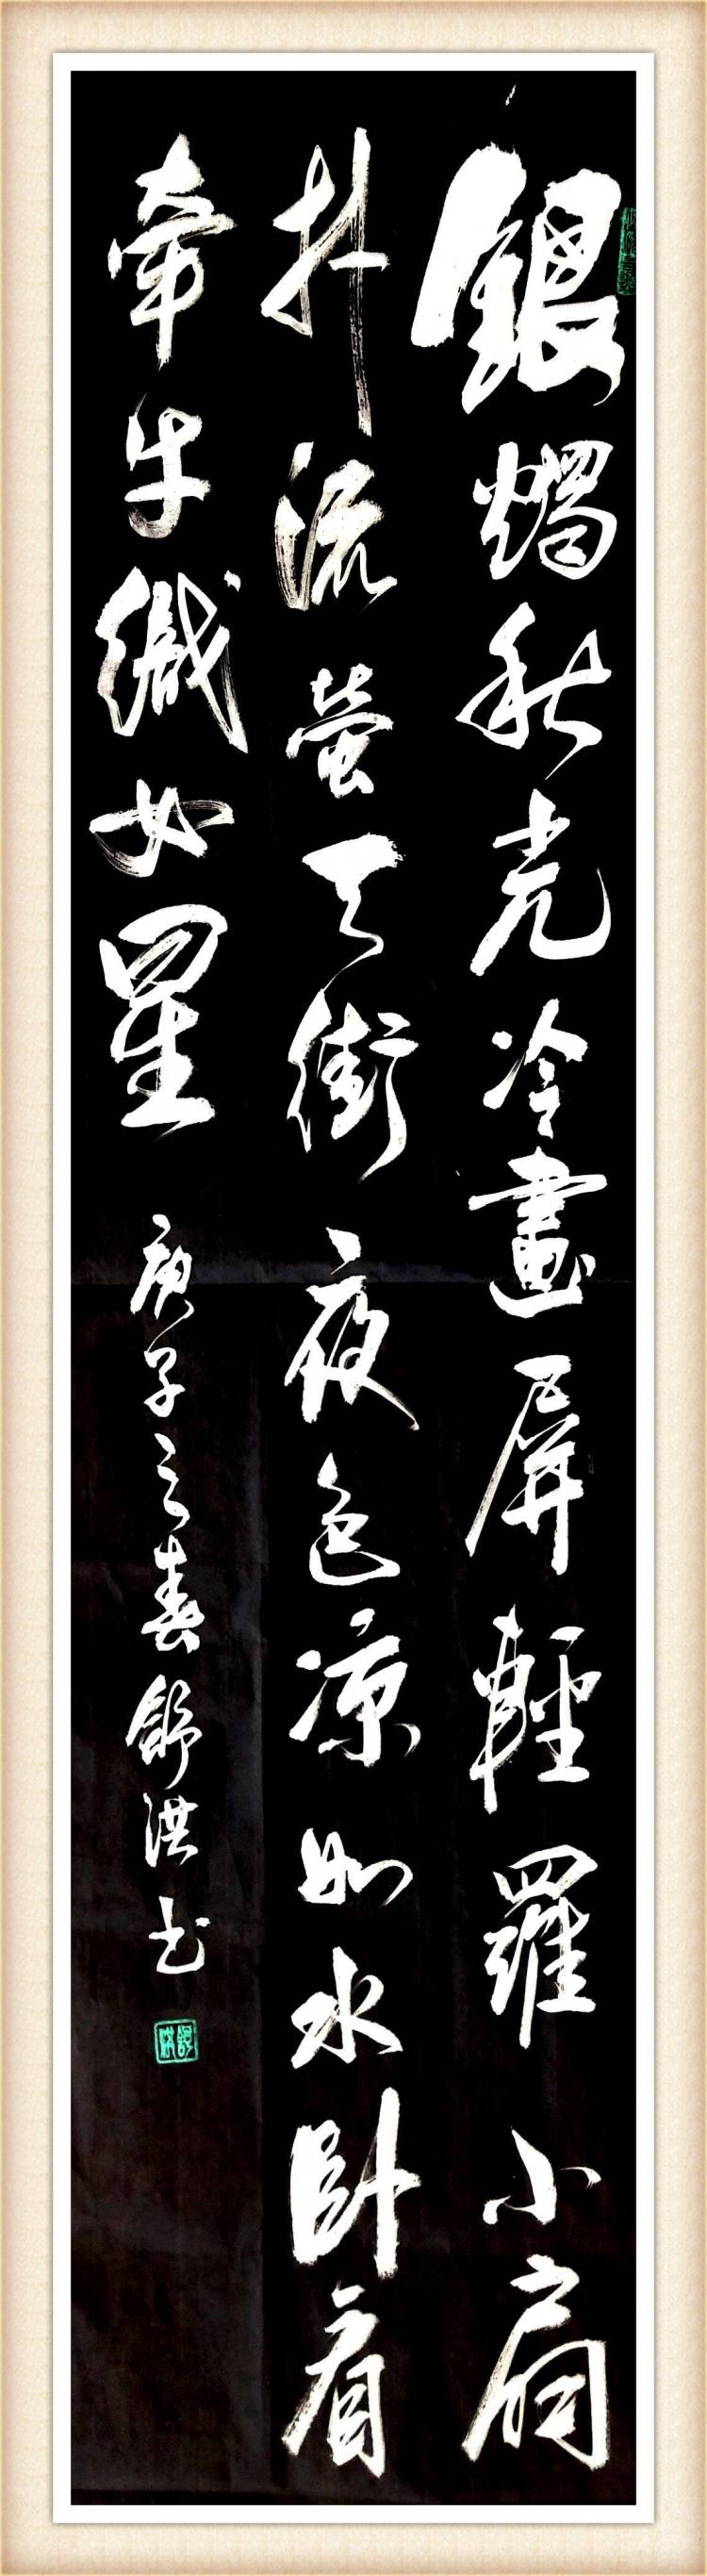 銀燭秋光冷畫屏輕羅小扇
扑流螢天街夜色凉如水卧看
牽牛織女星 庚子之春舒洪书
舒洪